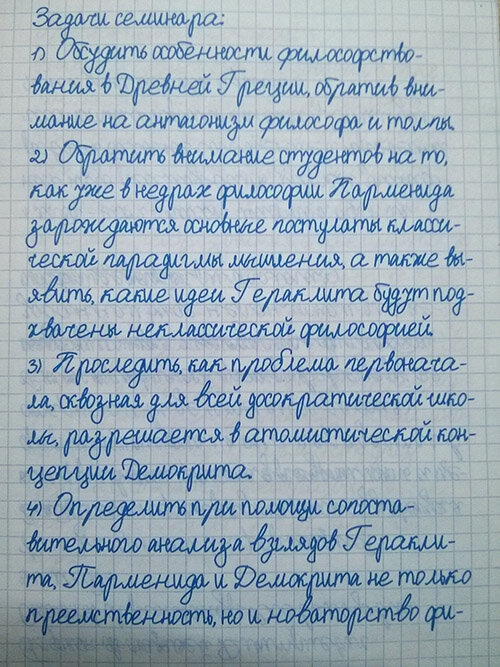 Задачи семинара:
1) Обсудить особенности философство-
вания в Древней Греции, обратив вни-
мание на антагонизм философа и толпы.
2) Обратить внимание студентов на то,
как уже в недрах философии Парменида
зарождаются основные постулаты класси-
ческой парадигмы мышления, а также вы-
явить, какие идеи Гераклита будут под-
хвачены неклассической философией.
3) Проследить, как проблема первонача-
ла, сквозная для всей досократической шко-
лы, разрешается в атомистической кон-
цепции Демокрита.
4) Определить при помощи сопоста-
вительного анализа взглядов Геракли-
та, Парменида и Демокрита не только
преемственность, но и новаторство фи-